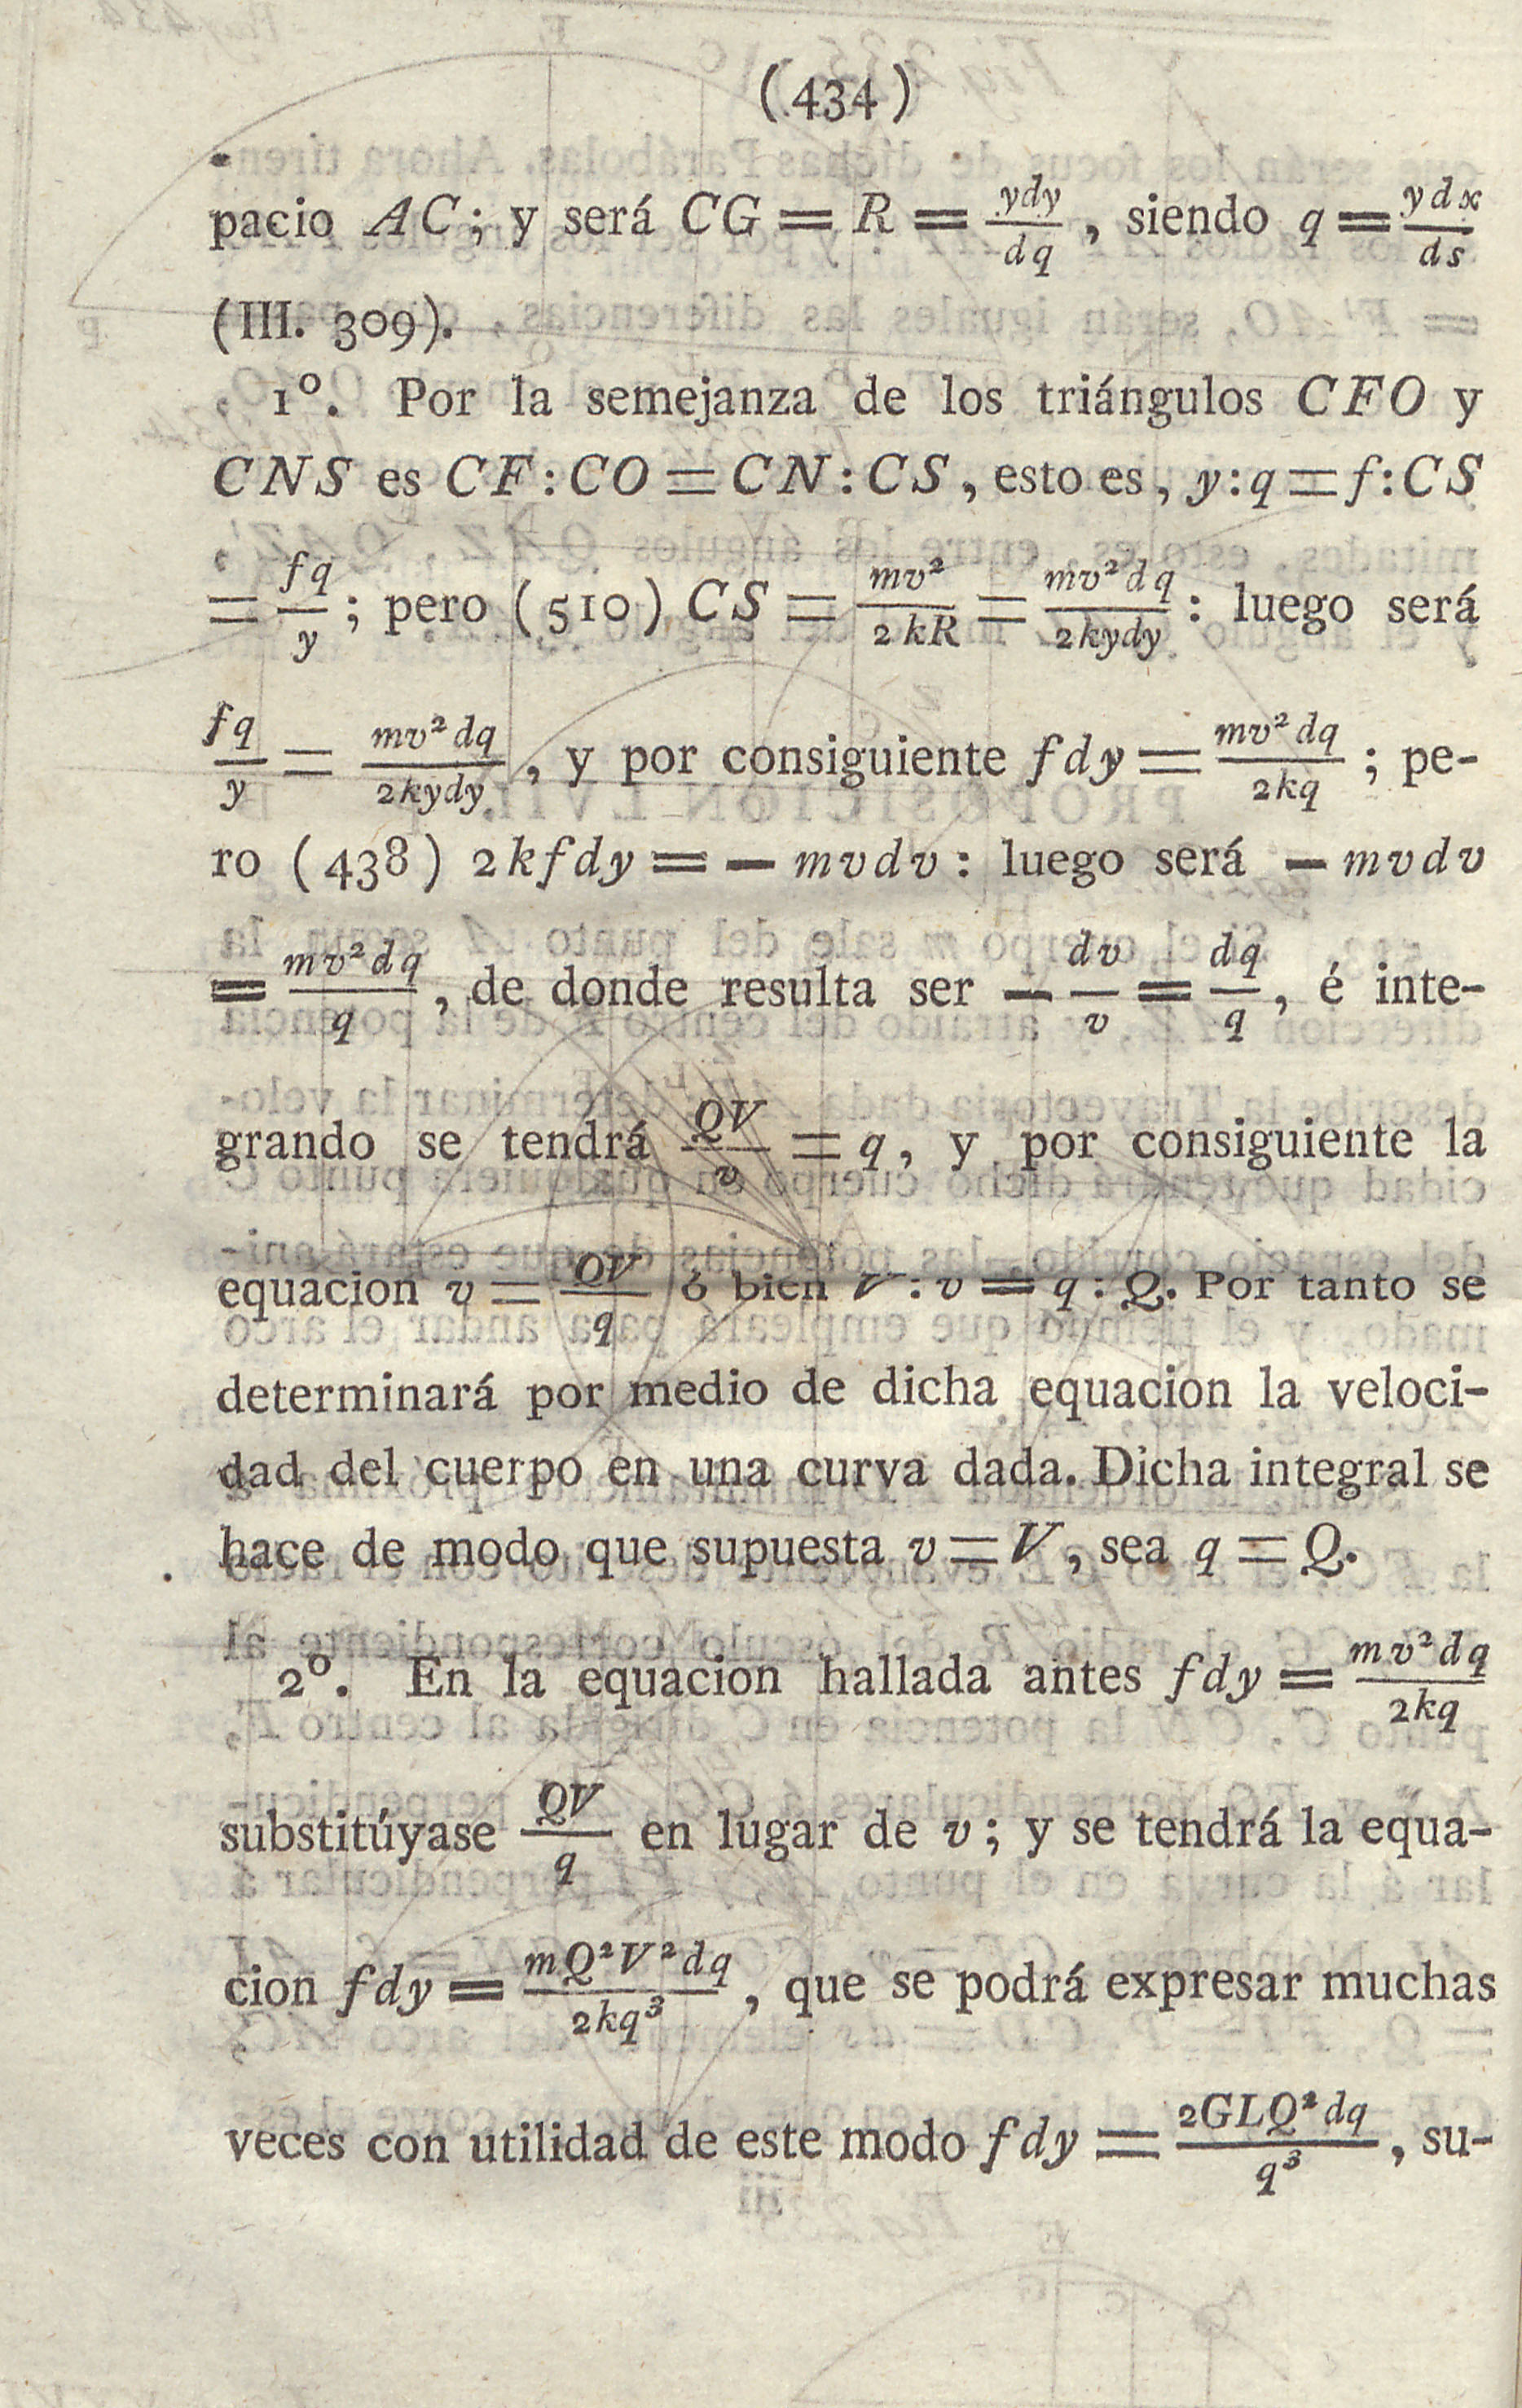 (434)
pacio AC; y será CG = R = ydy/dq, siendo q = ydx/ds
(III. 309).
1º. Por la semejanza de los triángulos CFO y
CNS es CF:CO = CN:CS, esto es, y:q = f:CS
= fq/y; pero (510) CS = mv²/2kR = mv²dq/2kydy: luego será
fq/y = mv²dq/2kydy, y por consiguiente fdy = mv²dq/2kq; pe-
ro (438) 2kfdy = — mvdv: luego será — mvdv
= mv²dq/q, de donde resulta ser — dv/v = dq/q, é inte-
grando se tendrá QV/v = q, y por consiguiente la
equacion v = QV/q ó bien V:v = q:Q. Por tanto se
determinará por medio de dicha equacion la veloci-
dad del cuerpo en una curva dada. Dicha integral se
hace de modo que supuesta v = V, sea q = Q.
2º. En la equacion hallada antes fdy = mv²dq/2kq
substitúyase QV/q en lugar de v; y se tendrá la equa-
cion fdy = mQ²V²dq/2kq³, que se podrá expresar muchas
veces con utilidad de este modo fdy = 2GLQ²dq/q³, su-